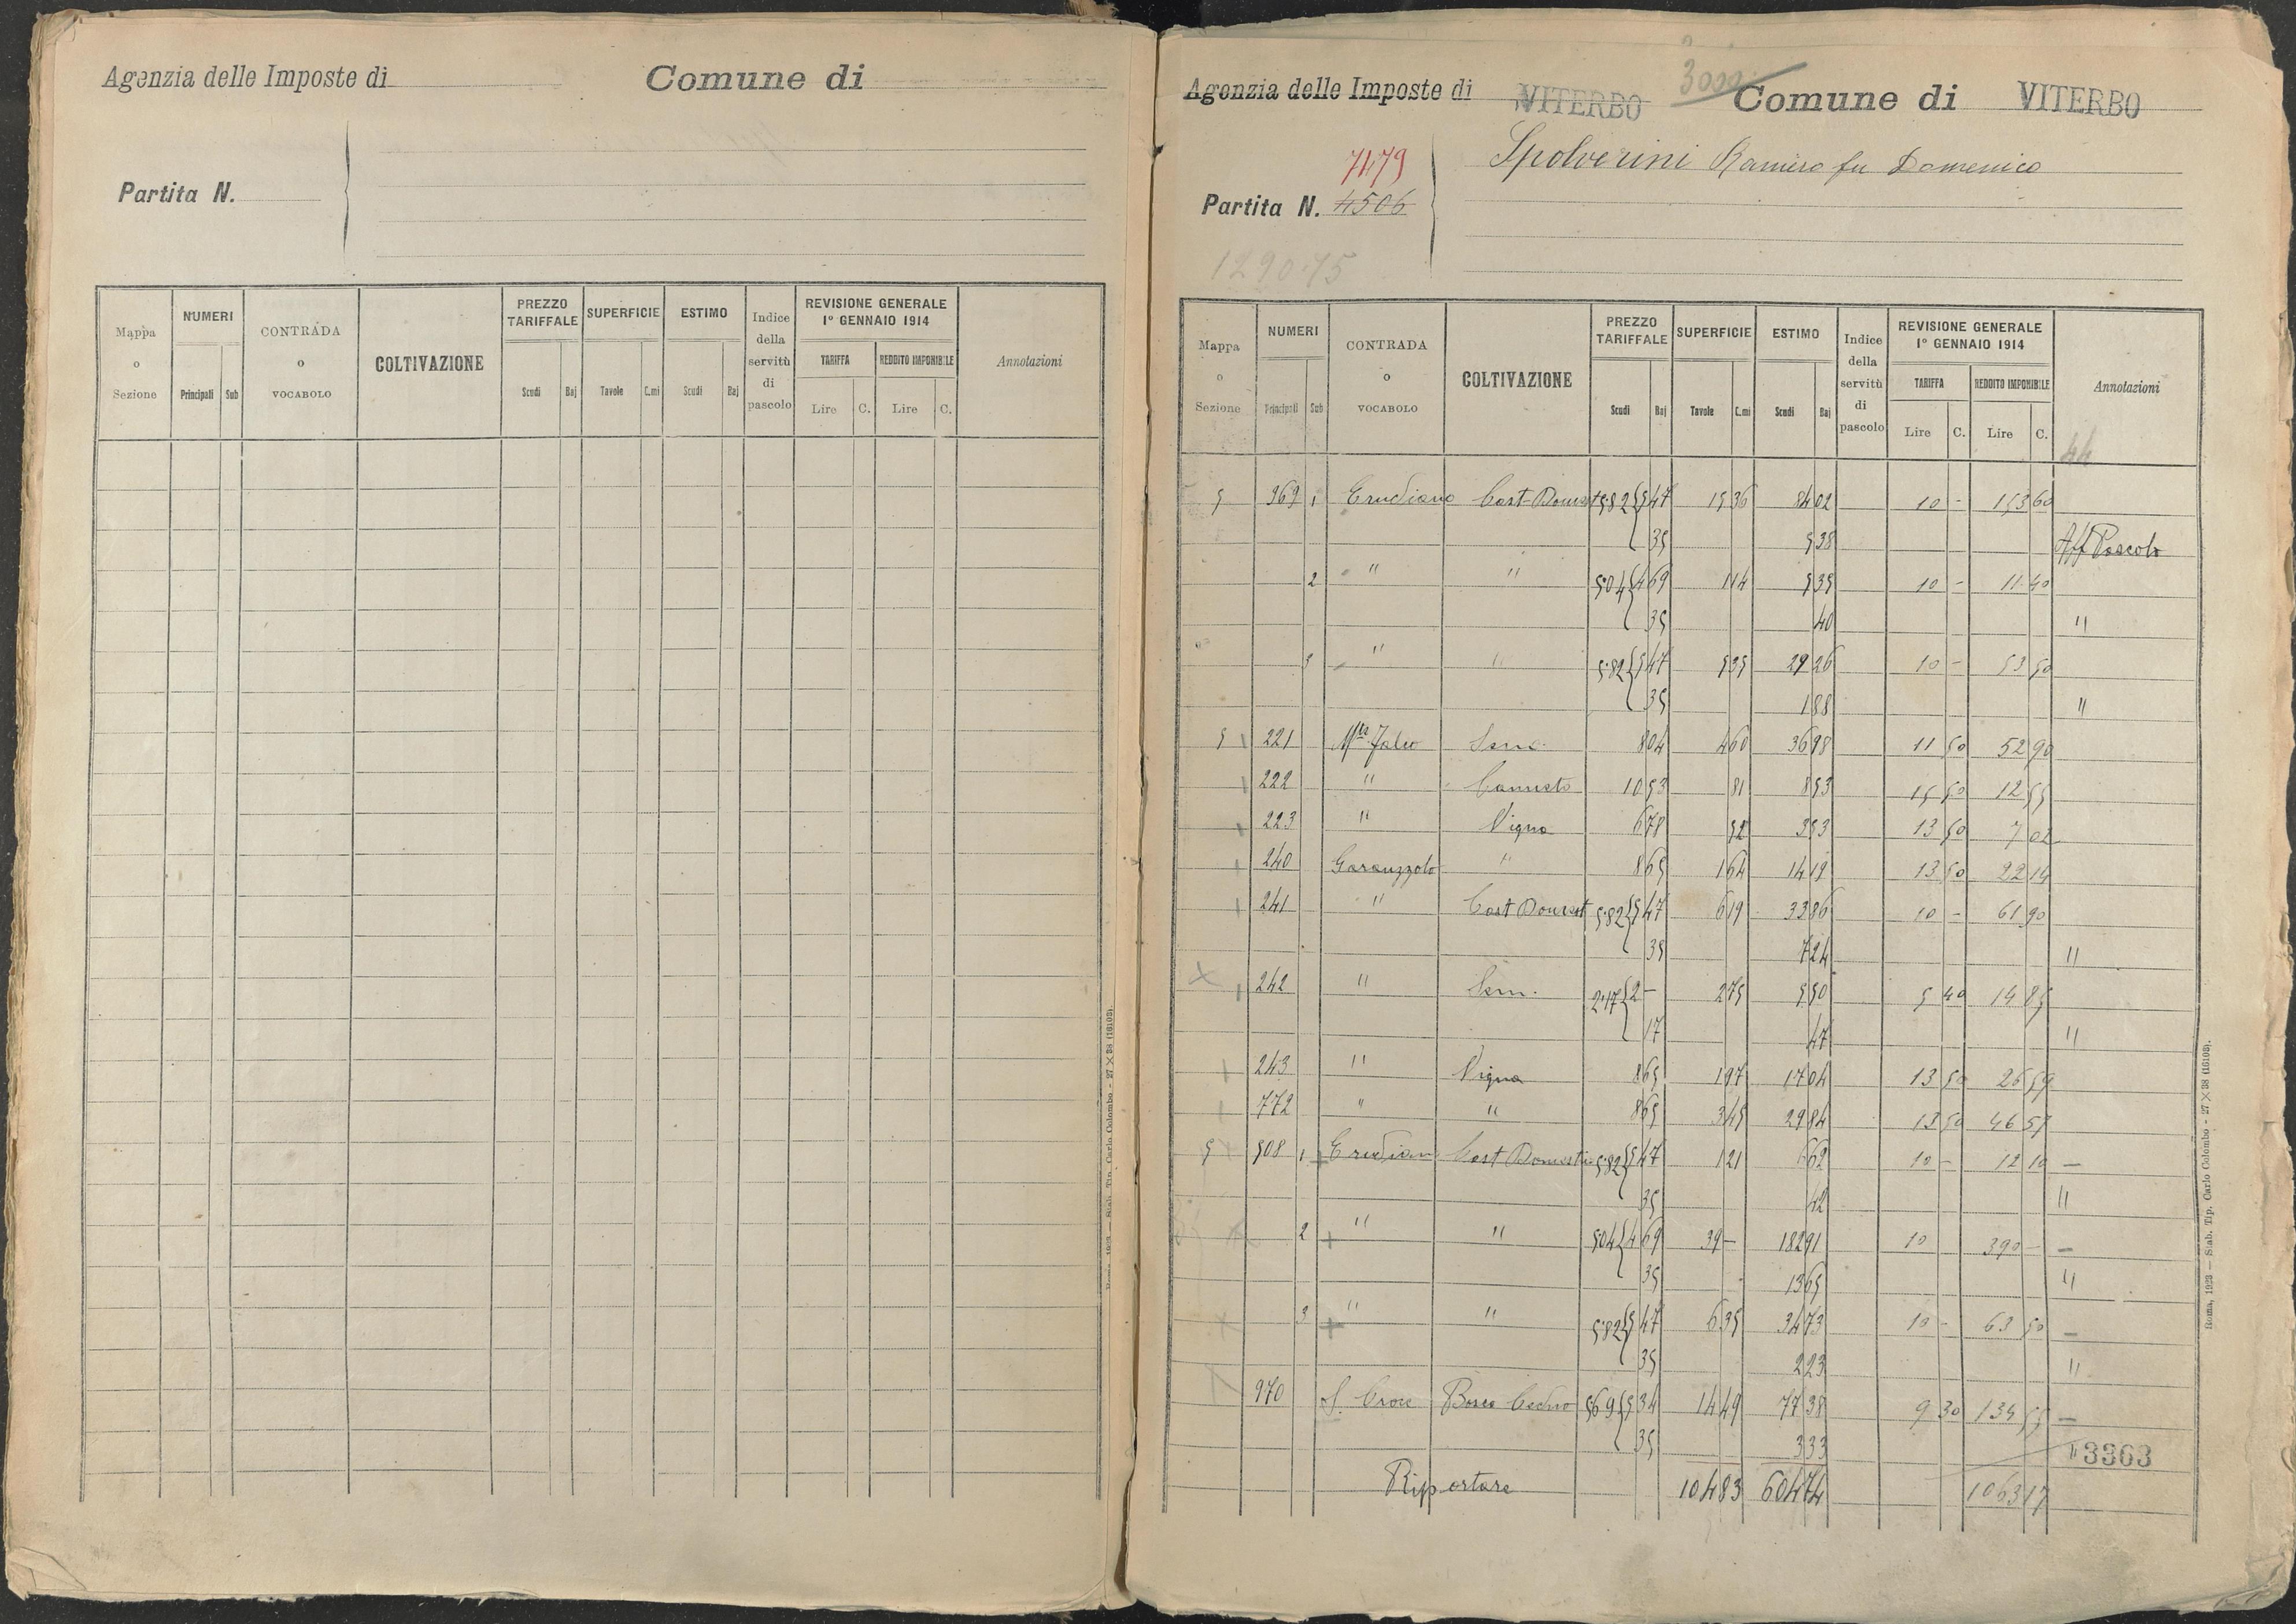 Agenzia delle Imposte di
Comune di
Partita N.
Mappa o Sezione
NUMERI
Principali Sub
CONTRADA o VOCABOLO
COLTIVAZIONE
PREZZO TARIFFALE
Scudi Baj
SUPERFICIE
Tavole C.mi
ESTIMO
Scudi Baj
Indice della servitù di pascolo
REVISIONE GENERALE 1º GENNAIO 1914
TARIFFA
Lire C.
REDDITO IMPONIBILE
Lire C.
Annotazioni
3000
Agenzia delle Imposte di VITERBO Comune di VITERBO
7479
Spolverini Ramiro fu Domenico
Partita N. 4506
1290.75
Mappa o Sezione
NUMERI
Principali Sub
CONTRADA o VOCABOLO
COLTIVAZIONE
PREZZO TARIFFALE
Scudi Baj
SUPERFICIE
Tavole C.mi
ESTIMO
Scudi Baj
Indice della servitù di pascolo
REVISIONE GENERALE 1º GENNAIO 1914
TARIFFA
Lire C.
REDDITO IMPONIBILE
Lire C.
Annotazioni
44
5 969 1 Cast. Domest 5.82 { 5 47 15 36 84 02 10 - 153 60
35 5 38 Aff Pascolo
2 " " 5.04 { 4 69 1 14 5 35 10 - 11 40
35 40 "
3 " " 5.82 { 5 47 5 35 29 26 10 - 53 50
35 1 88 "
5 221 Sem. 8 04 4 60 36 98 11 50 52 90
222 " Canneto 10 53 81 8 53 15 50 12 55
223 " Vigna 6 78 52 3 53 13 50 7 02
240 Garauzzolo " 8 65 1 64 14 19 13 50 22 14
241 " Cast Domest 5.82 { 5 47 6 19 33 86 10 - 61 90
35 "
242 " Sem. 2.17 { 2 - 2 75 5 50 5 40 14 85
17 47 "
243 " Vigna 8 65 1 97 17 04 13 50 26 59
772 " " 8 65 3 45 29 84 13 50 46 57
5 508 1 Cast Domestic 5.82 { 5 47 1 21 6 62 10 - 12 10 —
35 42 "
2 " " 5.04 { 4 69 39 - 182 91 10 390 - —
35 13 65 "
3 " " 5.82 { 5 47 6 35 34 73 10 - 63 50 —
35 2 23 "
970 S. Croce Bosco Ceduo 5.69 { 5 34 14 49 77 38 9 30 134 55 —
35 3 33 " 3363
Riportare 104 83 604 74 1063 17
Roma, 1923 — Stab. Tip. Carlo Colombo - 27 × 38 (16103).